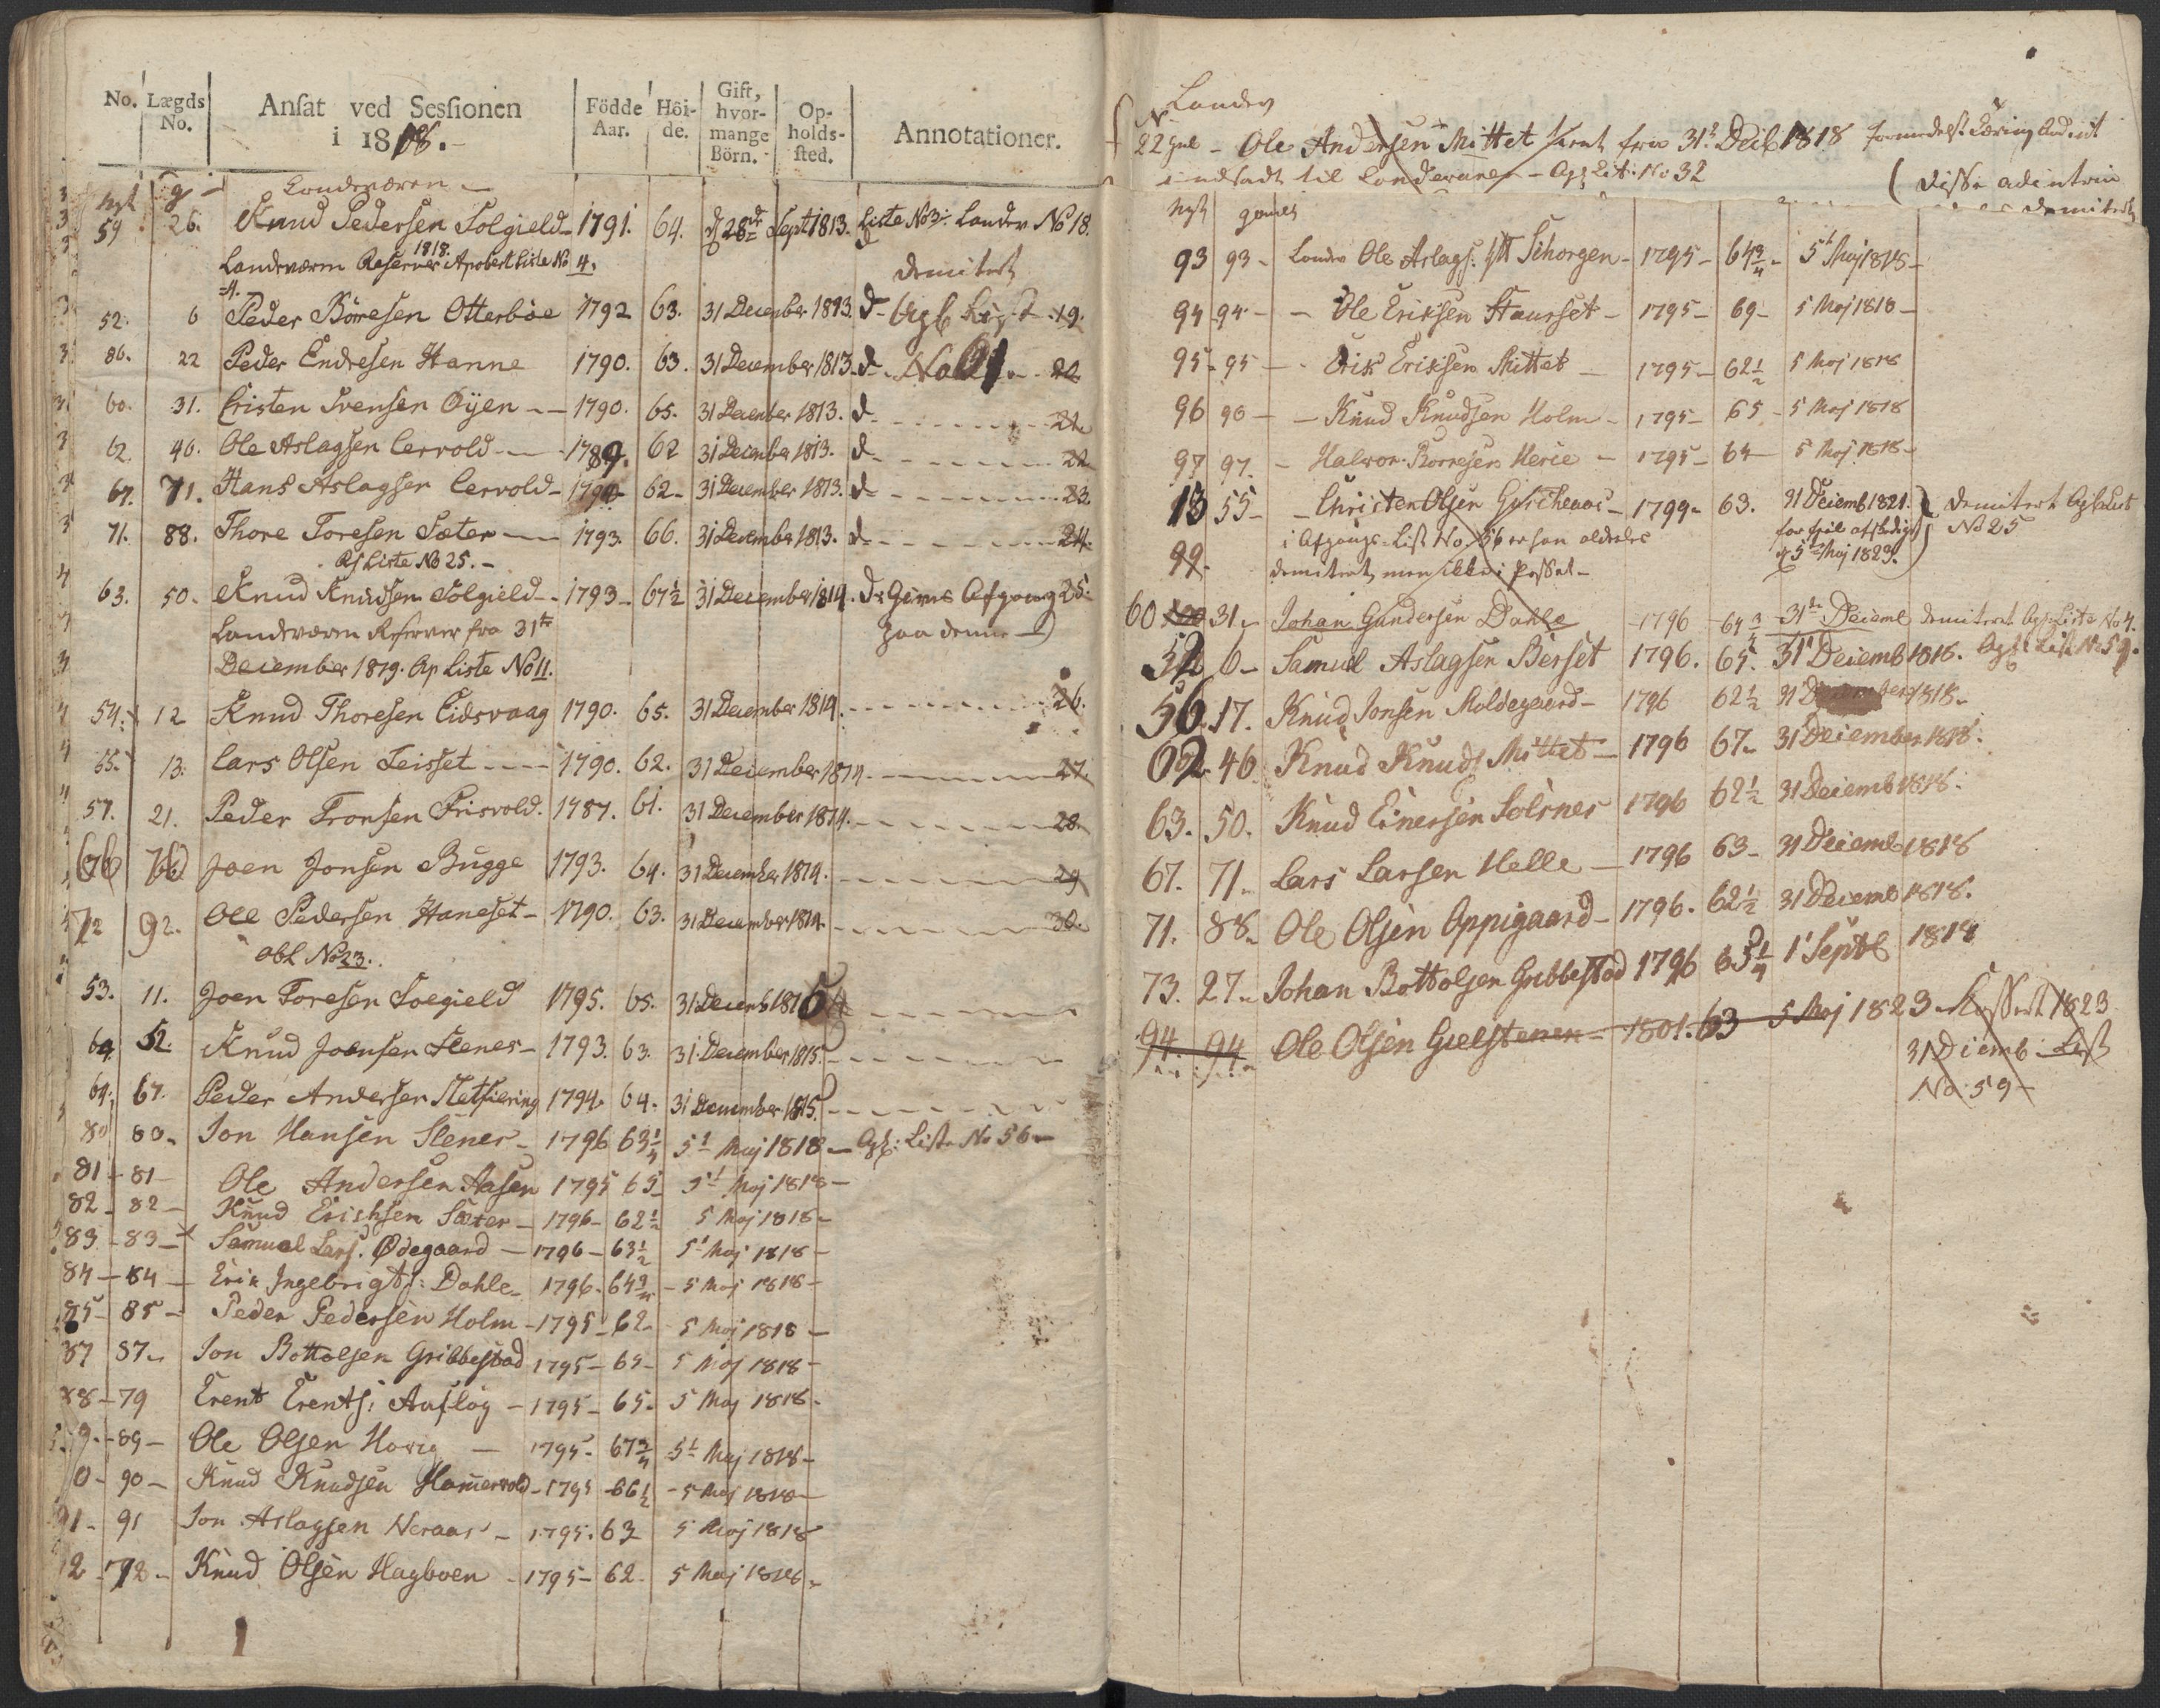 No. Lægds No. Ansat ved Sessionen i 1818. Födde Aar. Höi-de. Gift, hvor-mange Börn. Op-holds-sted. Annotationer.
nyt g Landværn
59 26. Knud Pedersen Solgield 1791. 64. d 28de Sept 1813. Liste No 3. Landev No 18.
Landværn Reserver 1818 Aprobert Liste No 4. Demitert
52. 6 Peder Börresen Otterböe 1792 63. 31 December 1813. d Agb List 19.
86. 22 Peder Endresen Hanne 1790. 63. 31 December 1813. d No 21 20
60. 31. Cristen Svensen Öyen 1790. 65. 31 December 1813. d 21.
62. 46. Ole Aslagsen Cervold 1789. 62 31 December 1813. d 22
67. 71. Hans Aslagsen Cervold 1794 62 31 December 1813. d 23.
71. 88. Thore Toresen Sæter 1793. 66. 31 December 1813. d 24.
Af Liste No 25.
63. 50. Knud Knudsen Solgield 1793 67½ 31 December 1814. d Givus Afgang 25.
Landværn Reserver fra 31te paa denne
December 1819. Ap Liste No 11.
54. 12 Knud Thoresen Eidsvaag 1790. 65. 31 December 1814. 26.
55. 13. Lars Olsen Leisset 1790. 62. 31 December 1814. 27.
57. 21. Peder Tronsen Frisvold. 1787. 61. 31 December 1814. 28.
66 Joen Jonsen Bugge 1793. 64. 31 December 1814. 29
72 92. Ole Pedersen Haneset 1790. 63. 31 December 1814. 30.
obl No 23.
53. 11. Joen Toresen Soegield 1795. 65. 31 Decemb 1815
64. 52. Knud Joensen Stenes 1793. 63. 31 December 1815.
64. 67. Peder Andersen Sletfiering 1794. 64. 31 December 1815.
80 80 Jon Hansen Stenes 1796 63¼ 5t Maj 1818 Agb: Liste No 56
81 81 Ole Andersen Aasen 1795 65 5t Maj 1818
82 82 Knud Erichsen Sæter 1796 62½ 5 Maj 1818
83 83 Samuel Lars. Ødegaard 1796 63½ 5t Maj 1818
84 84 Erik Ingebrigts: Dahle 1796. 64¾ 5 Maj 1818
85 85 Peder Pedersen Holm 1795 62 5 Maj 1818
87 87 Jon Bottolsen Gribbestad 1795 65 5 Maj 1818
88 79 Erent Erents: Ausløg 1795 65. 5 Maj 1818
9 89 Ole Olsen Hovig 1795 67¾ 5t Maj 1818
0 90 Knud Knudsen Hamervold 1795 66½ 5 Maj 1818
91 91 Jon Aslagsen Neraas 1795. 63 5 Maj 1818
2 92 Knud Olsen Hagboen 1795 62 5 Maj 1818
Landev
N
22 Ole Andersen Mittet fra 31t Decb 1818
indsadt til Landevarnet Agb Lit: No 32
( disse
demitert
nyt gamel
93 93 Landev Ole Aslags. Schorgen 1795 64¾ 5t Maj 1818
94 94 Ole Eriksen Staurset 1795 69 5 Maj 1818
95 95 Erik Eriksen Mittet 1795 62½ 5 Maj 1818
96 96 Knud Knudsen Holm 1795 65 5 Maj 1818
97 97. Halvor Borresen Herie 1795 64 5 Maj 1818
13 55 Christen Olsen 1799 63. 31 Decemb 1821. Demitert
i Afgangs List No 56 er han aldeeles for feil afskediget No 25
99. demitert men ikke i Passet d 5te Maj 1823.
60 100 31 Johan Gundersen Dahle 1796 64¾ 31te Decemb demitert Agb Liste No 4.
52 6 Samuel Aslagsen Berset 1796. 65. 31t Decemb 1818. Agb: List No 59.
56. 17. Knud Jonsen Moldegaard 1796 62½ 31 December 1818.
62. 46 Knud Knuds Mittet 1796 67. 31 December 1818.
63. 50. Knud Einersen Solsnes 1796 62½ 31 Decemb 1818.
67. 71. Lars Larsen Helle 1796 63 31 Decemb 1818
71. 88. Ole Olsen Oppigaard 1796. 62½ 31 Decemb 1818.
73. 27. Johan Bottolsen Gribbestad 1796 65¼ 1t Septb 1818
94. 94. Ole Olsen Gielstenen 1801. 63 5 Maj 1823 Kassert 1823
31 Decemb List
No 59